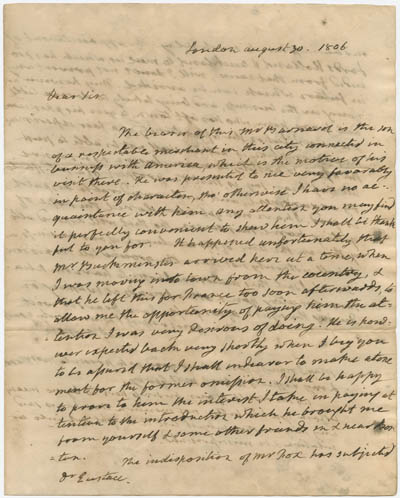 London august 30. 1806
Dear Sir
The bearer of this Mr Barnard is the son
of a respectable merchant in this city connected in
business with America, which is the motive of his
visit there. He was presented to me very favorably
in point of character, tho' otherwise I have no ac-
quaintance with him. any attention you may find
it perfectly convenient to shew him I shall be thank
ful to you for. It happened unfortunately that
Mr Buckminster arrived here at a time, when
I was moving into town from the country, &
that he left this for France too soon afterwards, to
allow me the opportunity of paying him the at-
tention I was very desirous of doing. He is how-
ever expected back very shortly when I beg you
to be assured that I shall endeavor to make atone
ment for the former omission. I shall be happy
to prove to him the interest I take in paying at
tention to the introduction which he brought me
from yourself & some other friends in & near Bos
ton.
The indisposition of Mr Fox has subjected
Dr Eustace.